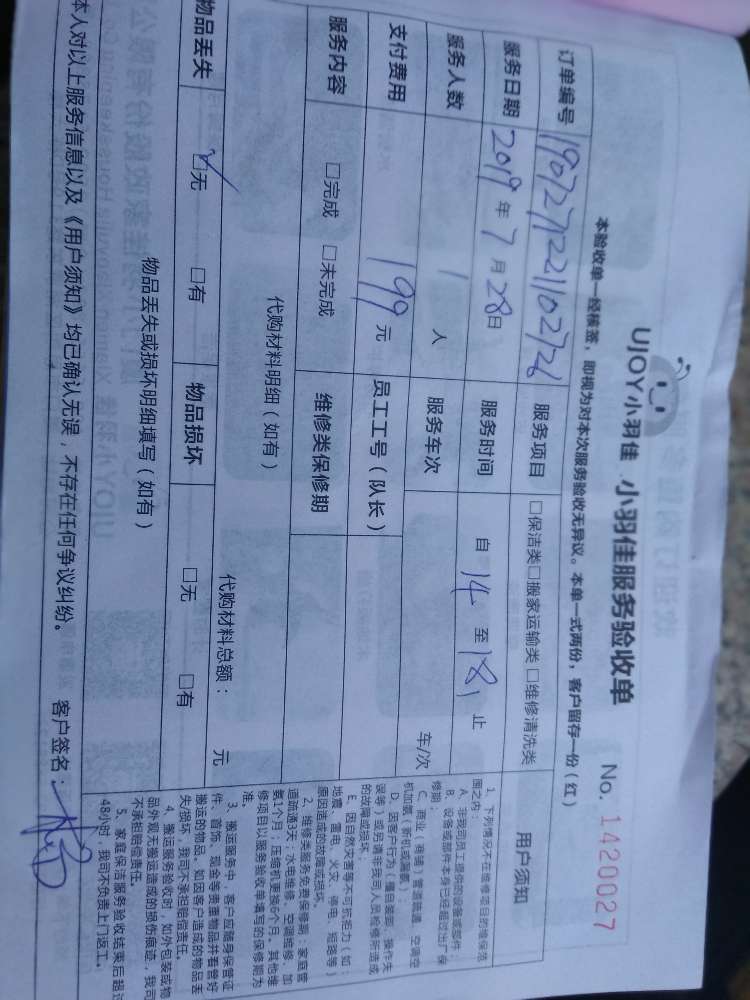 UJOY小羽佳 小羽佳服务验收单 No. 1420027
本验收单一经核签，即视为对本次服务验收无异议。本单一式两份，客户留存一份（红）
订单编号 服务项目 □保洁类□搬家运输类□维修清洗类
服务日期 2019年7月28日 服务时间 自14至18止
服务人数 1人 服务车次 车/次
支付费用 199元 员工工号（队长）
服务内容 □完成 □未完成 维修类保修期
代购材料明细（如有） 代购材料总额： 元
物品丢失 ☑无 □有 物品损坏 □无 □有
物品丢失或损坏明细填写（如有）
本人对以上服务信息以及《用户须知》均已确认无误，不存在任何争议纠纷。 客户签名：
用户须知
1、下列情况不在维修项目的维保范
围之内：
A、非我司员工提供的设备或部件；
B、设备或部件本身已经超过出厂保
修期；
C、商业（商铺）管道疏通、空调空
D、因客户行为（擅自装卸、操作失
误等）或另请非我司人员检修所造成
的故障或损坏；
E、因自然灾害等不可抗拒力（如：
地震、雷电、火灾、停电、短路等）
原因造成的故障或损坏。
2、维修类服务免费保修期：家庭管
道疏通3天；水电维修、空调维修、加
氨1个月；压缩机更换6个月。其他维
修项目以服务验收单填写的保修期为
准。
3、搬运服务中，客户应随身保管证
件、首饰、现金等贵重物品并看管好
搬运的物品。如因客户造成的物品丢
失/损坏，我司不承担赔偿责任。
4、搬运服务验收时，如外包装或物
品外观无搬运造成的损伤痕迹，我司
不承担赔偿责任。
5、家庭保洁服务验收结束后超过
48小时，我司不负责上门返工。